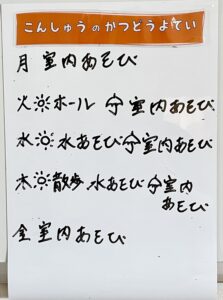 こんしゅうのかつどうよてい
月 室内あそび
火☀ホール ☂室内あそび
水☀水あそび☂室内あそび
木☀散歩、水あそび☂室内
あそび
金 室内あそび